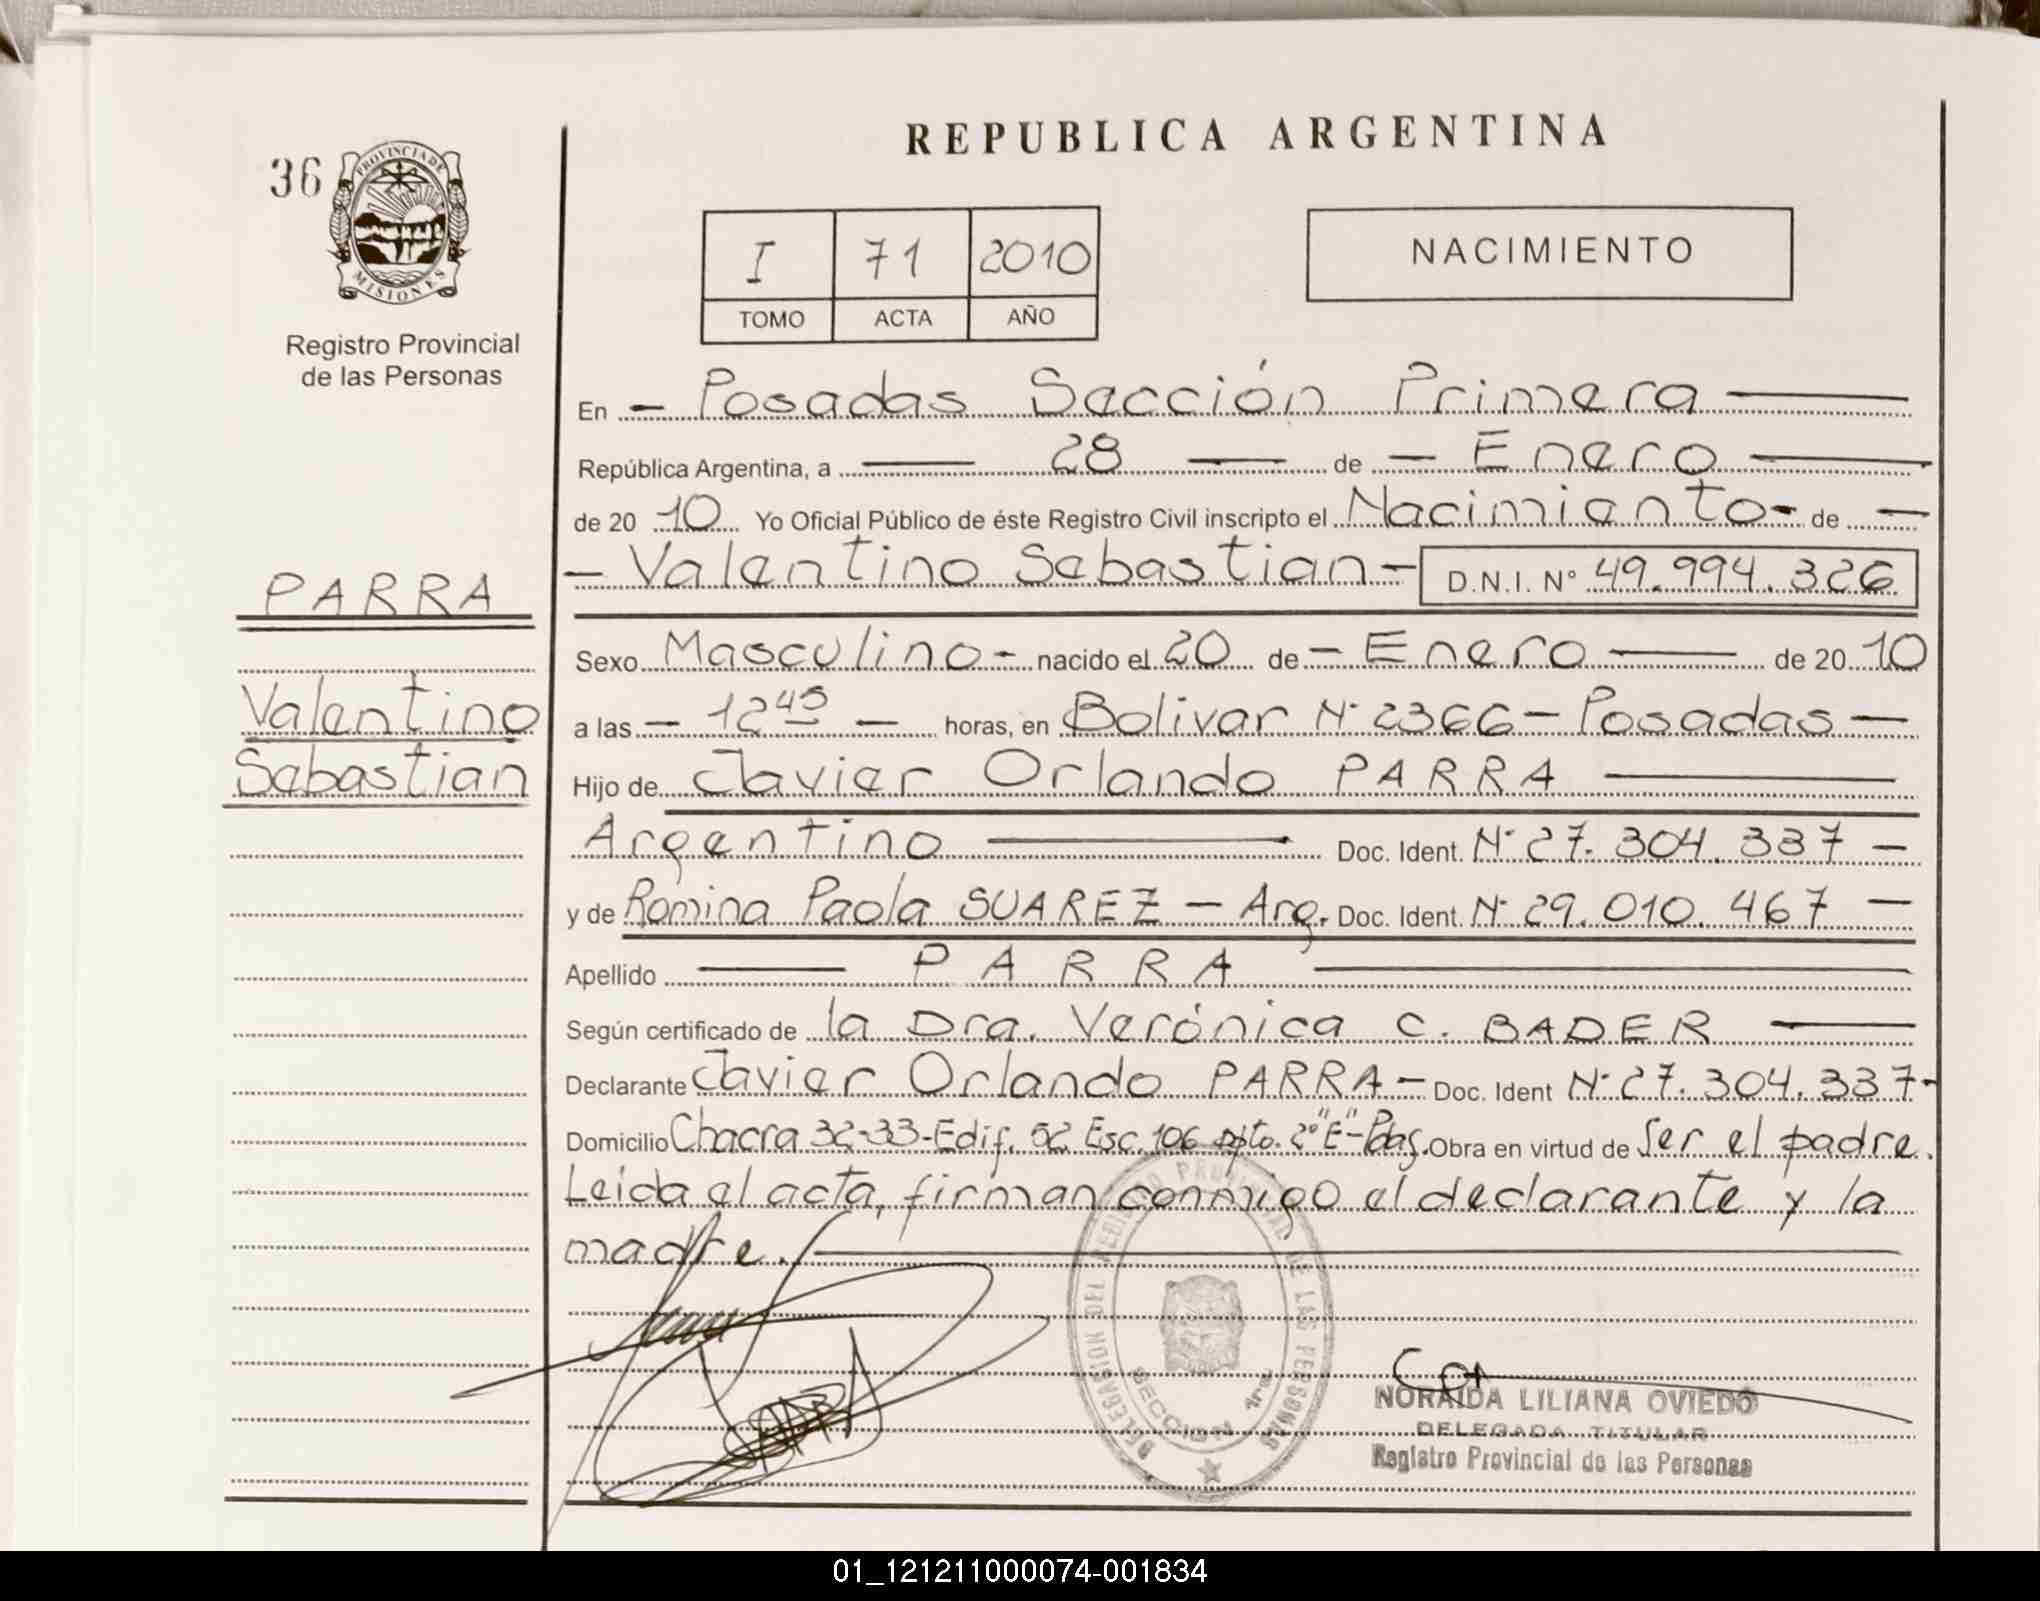 REPUBLICA ARGENTINA
36
PROVINCIA DE
MISIONES
Registro Provincial
de las Personas
I 71 2010
TOMO ACTA AÑO
NACIMIENTO
En - Posadas Sección Primera
República Argentina, a 28 de - Enero
de 20 10 Yo Oficial Público de éste Registro Civil inscripto el Nacimiento - de -
- Valentino Sebastian - D.N.I. N° 49.994.326
PARRA
Valentino
Sebastian
Sexo Masculino - nacido el 20 de - Enero de 20 10
a las - 12 45 - horas, en Bolivar N° 2366 - Posadas -
Hijo de Javier Orlando PARRA
Argentino Doc. Ident. N° 27.304.337 -
y de Romina Paola SUAREZ - Arg. Doc. Ident. N° 29.010.467 -
Apellido PARRA
Según certificado de la Dra. Verónica C. BADER
Declarante Javier Orlando PARRA - Doc. Ident N° 27.304.337 -
Domicilio Chacra 32-33-Edif. 52 Esc. 106 Dpto. 2° "E"- Pdas. Obra en virtud de Ser el padre.
Leida el acta, firman conmigo el declarante y la
madre.
DELEGACION DEL REGISTRO PROVINCIAL DE LAS PERSONAS
SECCION 1ra
NORAIDA LILIANA OVIEDO
DELEGADA TITULAR
Registro Provincial de las Personas
01_121211000074-001834